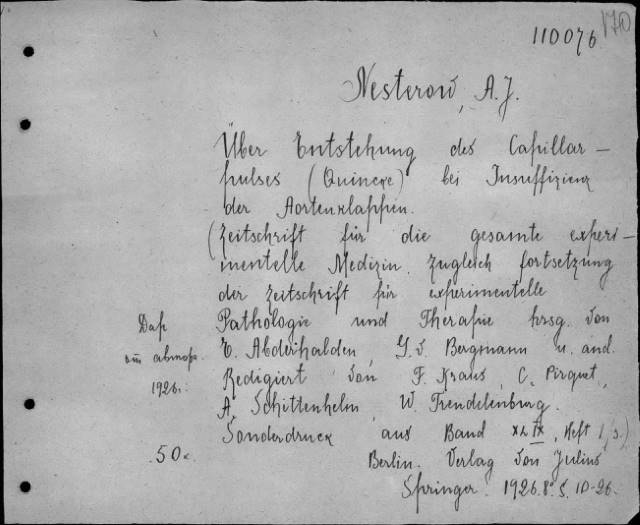 170
110076
Nesterow, A. J.
Über Entstehung des Capillar –
pulses (Quincke) bei Insuffizienz
der Aortenklappen.
(Zeitschrift für die gesamte experi-
mentelle Medizin. Zugleich Fortsetzung
der Zeitschrift für experimentelle
Pathologie und Therapie hrsg. von
E. Abderhalden, G. v. Bergmann u. and.
Redigiert von F. Kraus, C. Pirquet,
A. Schittenhelm, W. Trendelenburg.
Sonderdruck aus Band Heft 1/3.)
Berlin. Verlag von Julius
Springer. 1926. 8. S. 10-26.
Дар
автора.
1926.
50.